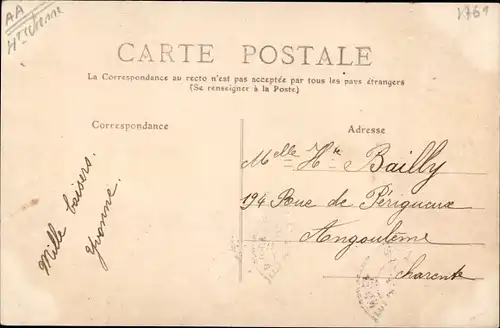 AA
1769
CARTE POSTALE
La Correspondance au recto n'est pas acceptée par tous les pays étrangers
(Se renseigner à la Poste)
Correspondance
Adresse
Mille baisers.
Yvonne.
Melle Hte Bailly
194 Rue de Périgueux
Angoulême
Charente